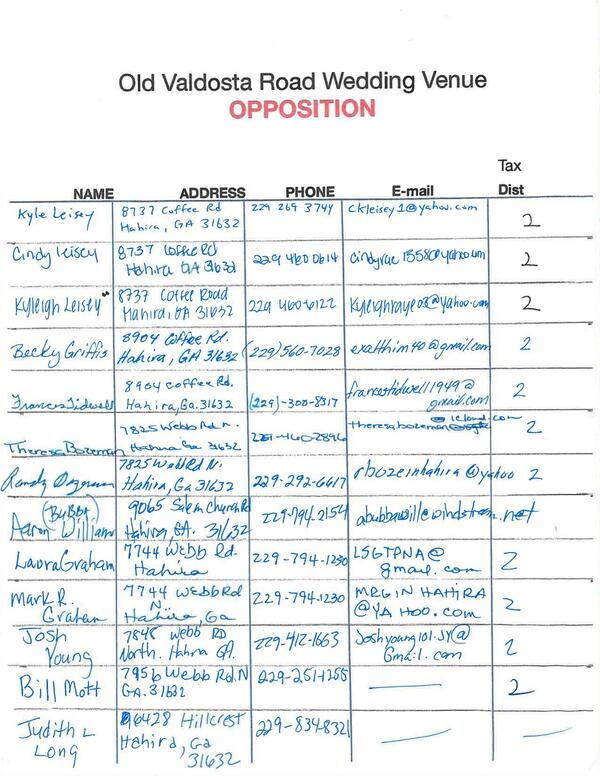 Old Valdosta Road Wedding Venue
OPPOSITION
Tax
NAME ADDRESS PHONE E-mail Dist
Kyle Leisey 8737 Coffee Rd 229 269 3744 ckleisey1@yahoo.com 2
Hahira, GA 31632
Cindy Leisey 8737 Coffee Rd 229 460 0614 2
Hahira GA 31632
Kyleigh Leisey 8737 Coffee Road 229 460-6122 Kyleighraye03@yahoo.com 2
Hahira, GA 31632
Becky Griffis 8904 Coffee Rd. (229)560-7028 exatthim40@gmail.com 2
Hahira, GA 31632
Frances Tidwell 8904 Coffee Rd. (229)-300-8317 francestidwell1949@ 2
Hahira, Ga. 31632 gmail.com
Theresa Bozeman 7825 Webb Rd N. 229-460-2896 theresabozeman@icloud.com 2
Hahira Ga 31632
Randy 7825 Webb Rd N. 229-292-6617 rbozeinhahira@yahoo 2
Hahira, Ga 31632
(Bubba) 9065 Salem Church Rd 229-794-2154 windstream.net
Aaron Williams Hahira, GA. 31632
Laura Graham 7744 Webb Rd. 229-794-1230 LSGTPNA@ 2
Hahira gmail.com
Mark R. 7744 Webb Rd 229-794-1230 MRGINHAHIRA 2
Graham N. @YAHOO.COM
Hahira, Ga
Josh 7848 Webb RD 229-412-1663 Joshyoung101.JY@ 2
Young North. Hahira GA. Gmail.com
Bill Mott 7956 Webb Rd. N 229-251-1255 — 2
GA. 31632
Judith L 6428 Hillcrest 229-834-8321 — —
Long Hahira, Ga
31632